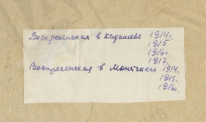 Воскресенская в Кадашеве 1914.
1915.
1916.
1917.
Воскресенская в Монетчиках 1914.
1915.
1916.